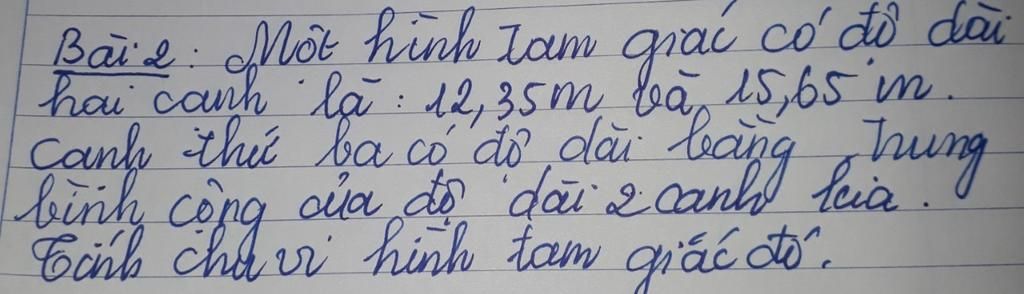 Bài 2: Một hình tam giác có độ dài
hai cạnh là: 12,35m và 15,65 m.
Cạnh thứ ba có độ dài bằng trung
bình cộng của độ dài 2 cạnh kia.
Tính chu vi hình tam giác đó.